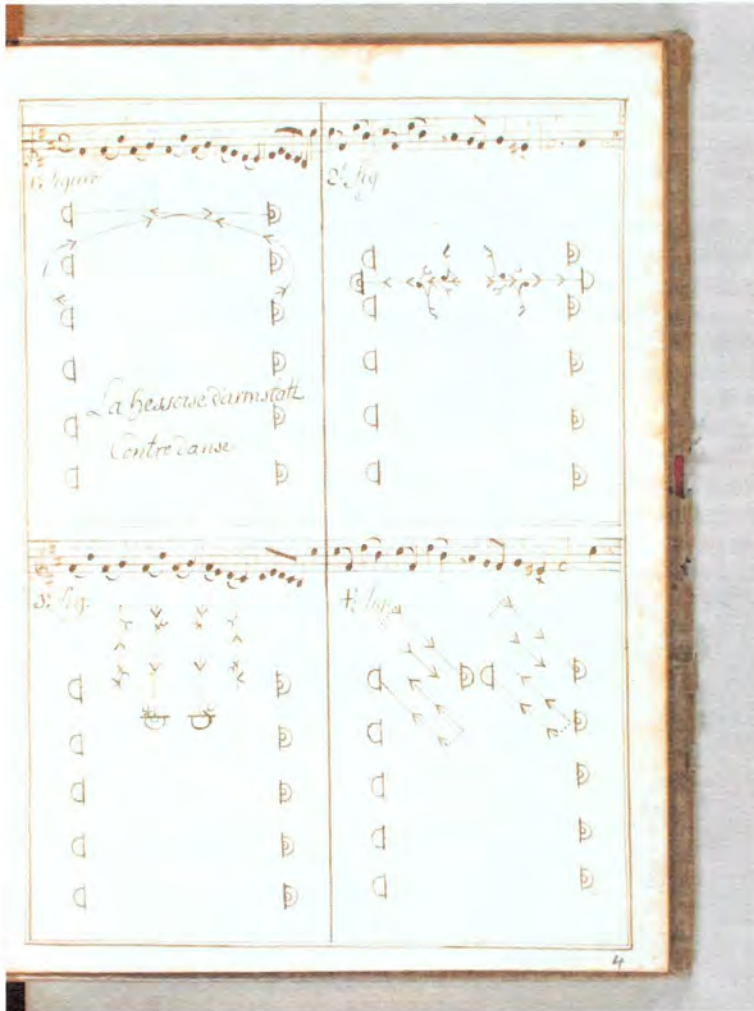 1e figure
2e fig
La hessoise darmstatt
Contre danse
3e fig.
4e fig.
4